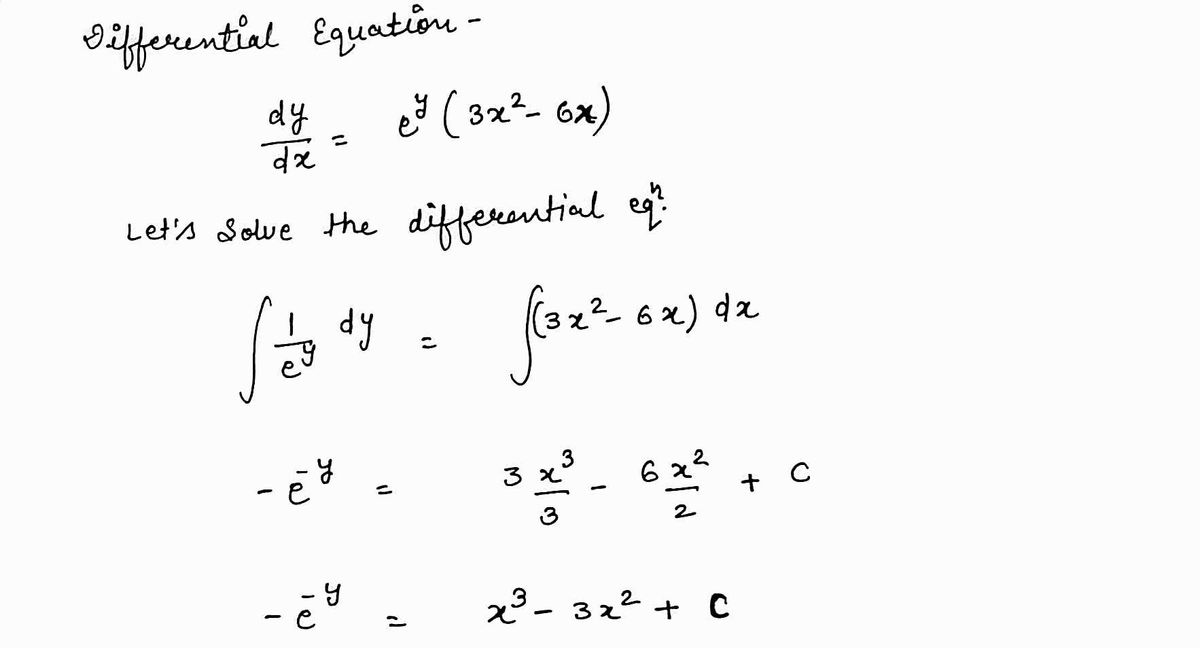 Differential Equation -
dy/dx = e^y (3x² - 6x)
Let's Solve the differential eqⁿ.
∫ 1/e^y dy = ∫(3x² - 6x) dx
- e^-y = 3 x³/3 - 6 x²/2 + C
- e^-y = x³ - 3x² + C